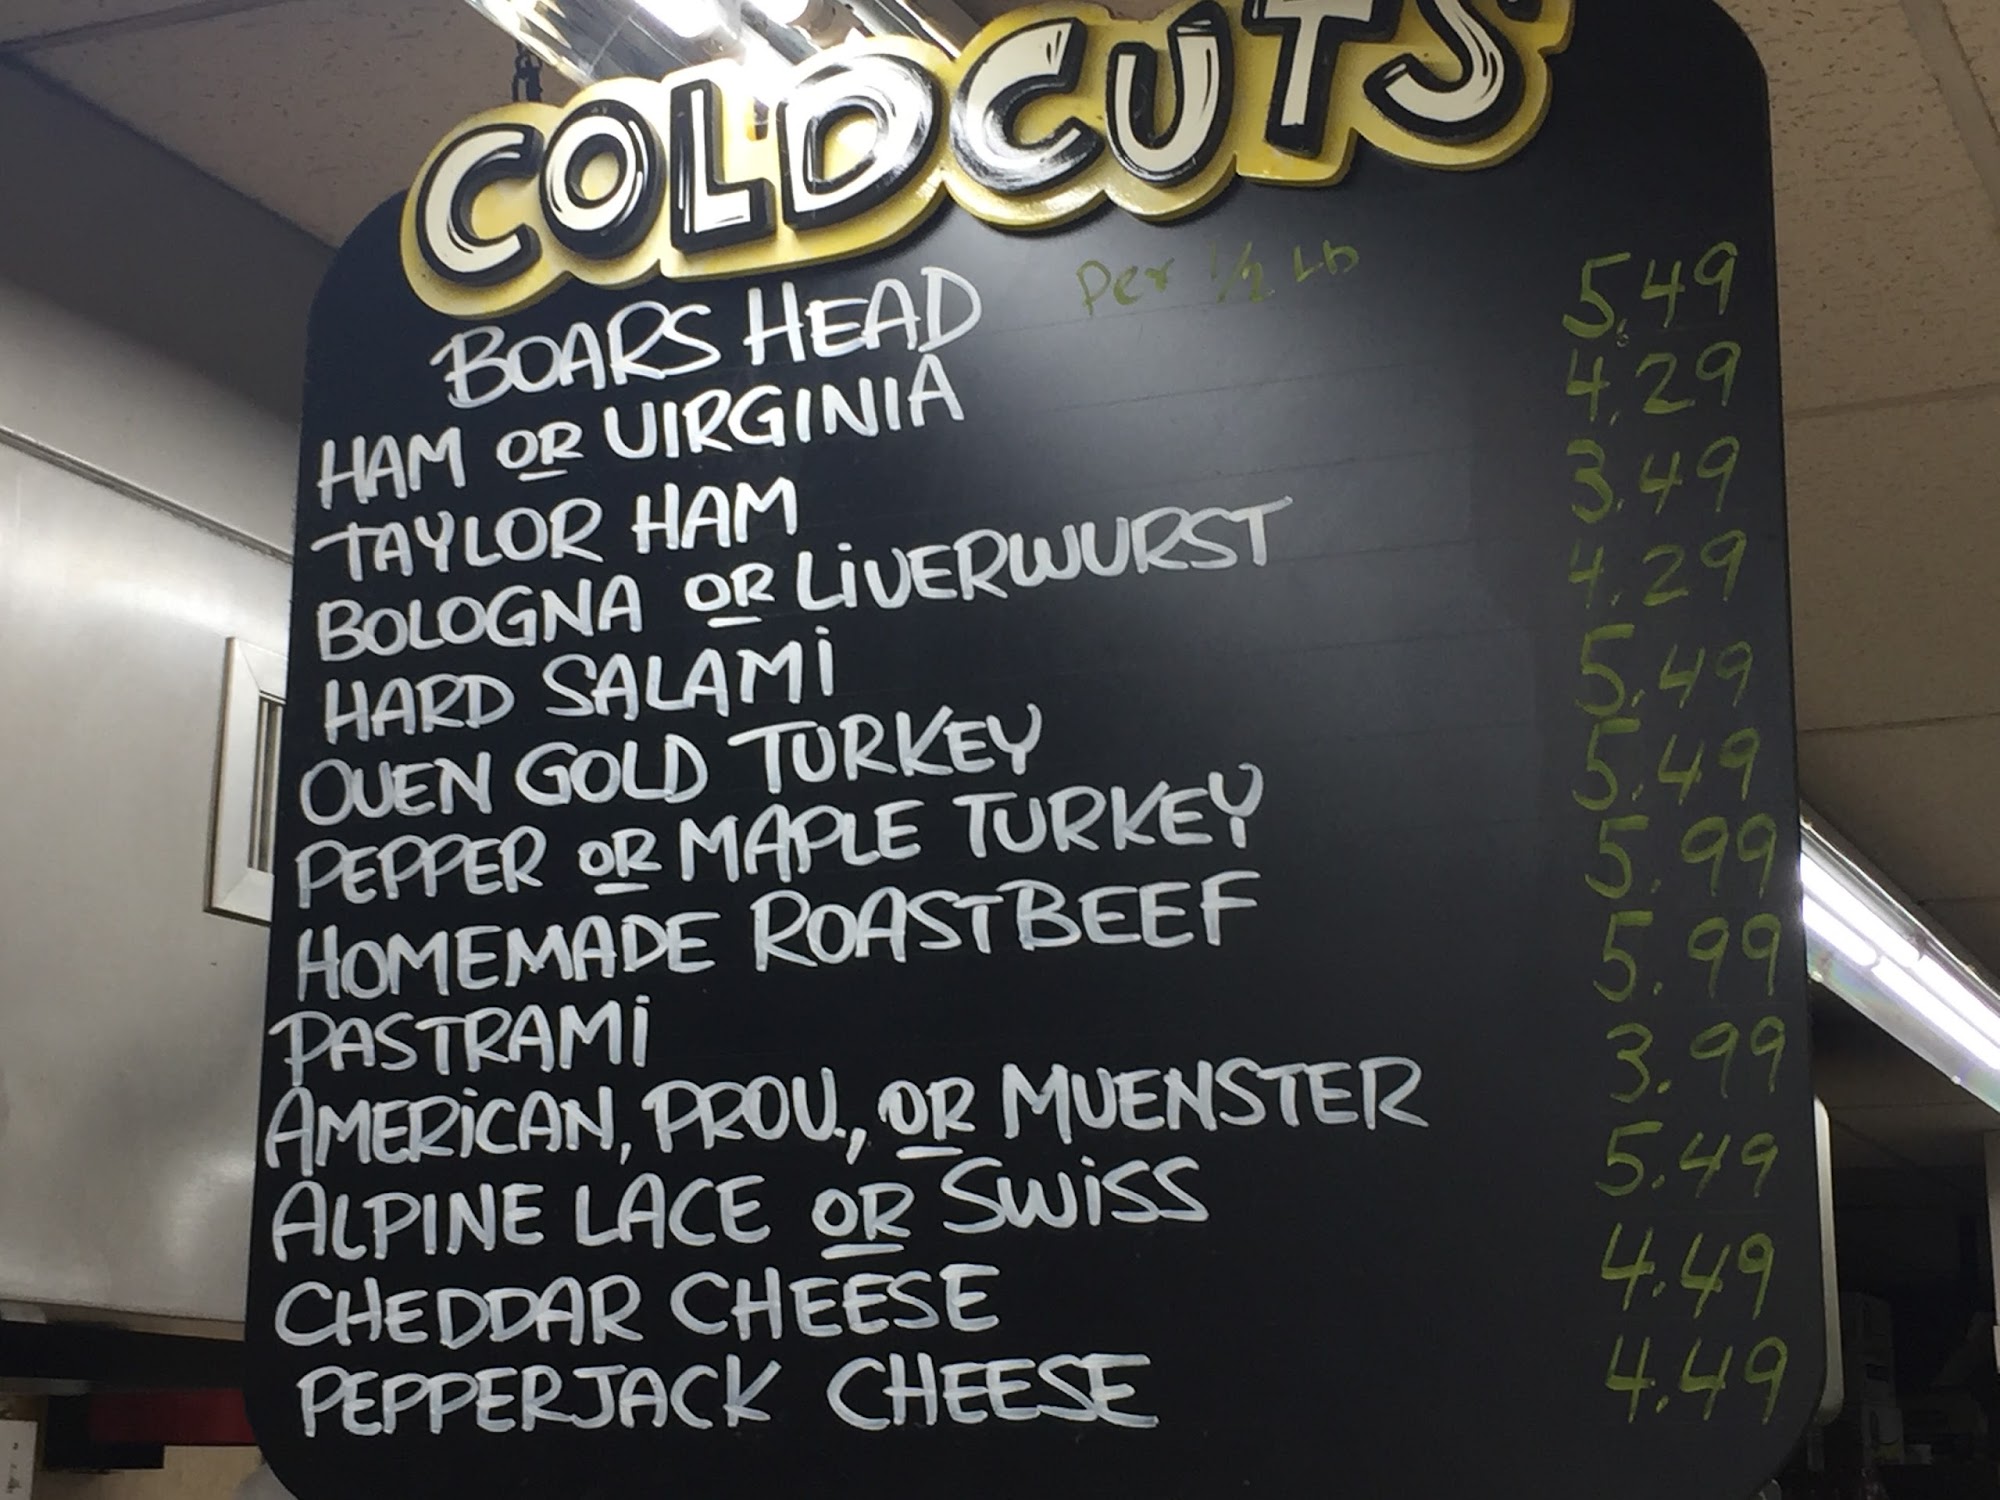 COLDCUTS
BOARS HEAD Per 1/2 Lb
HAM OR VIRGINIA 5.49
TAYLOR HAM 4.29
BOLOGNA OR LIVERWURST 3.49
HARD SALAMI 4.29
OVEN GOLD TURKEY 5.49
PEPPER OR MAPLE TURKEY 5.49
HOMEMADE ROASTBEEF 5.99
PASTRAMI 5.99
AMERICAN, PROV., OR MUENSTER 3.99
ALPINE LACE OR SWISS 5.49
CHEDDAR CHEESE 4.49
PEPPERJACK CHEESE 4.49